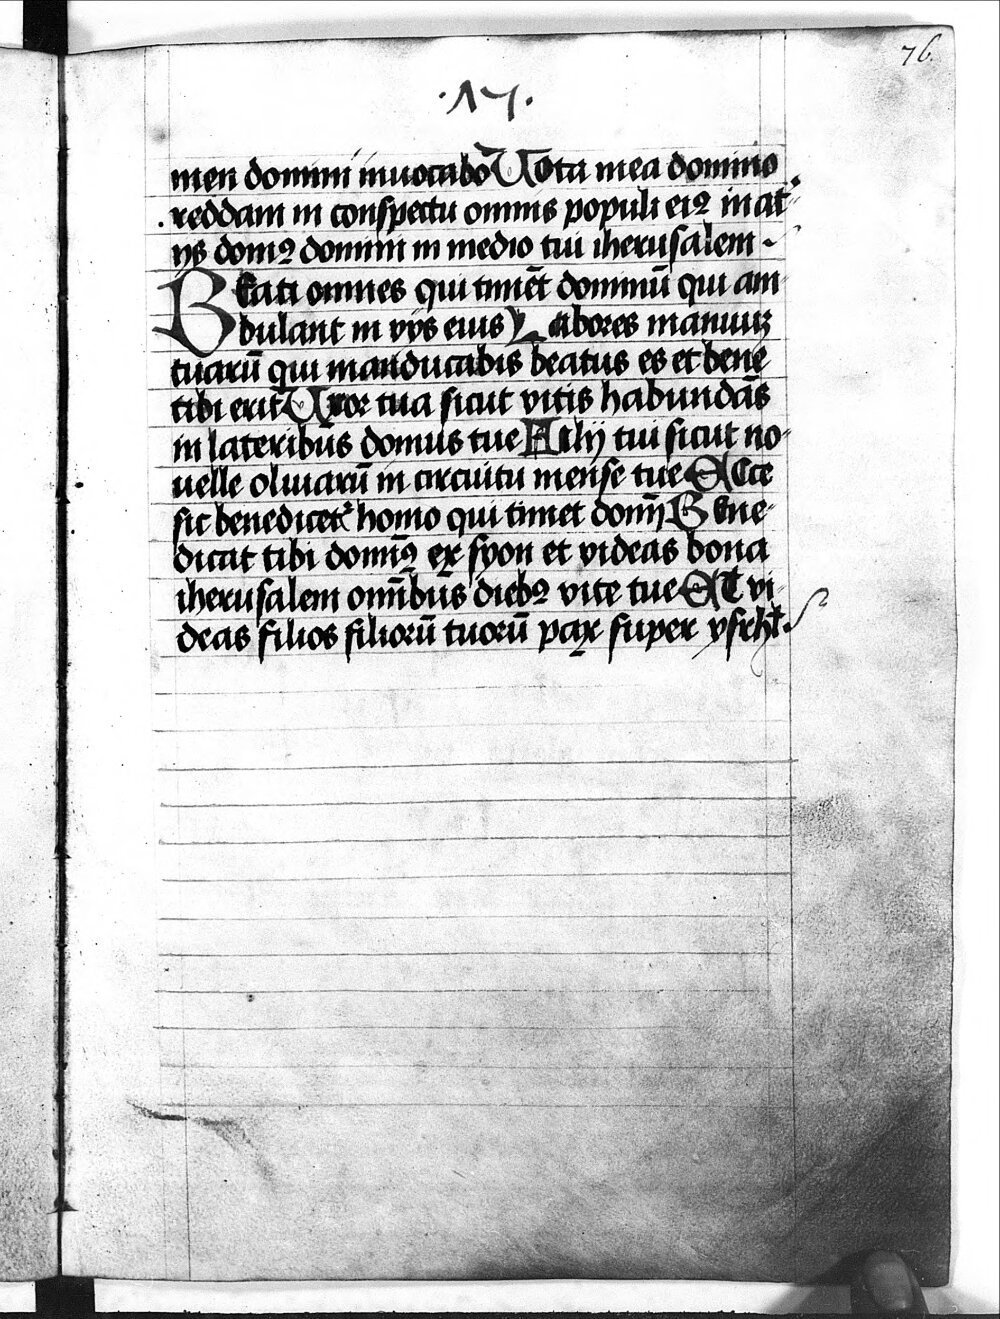 76.
·17·
men domini inuocabo Uota mea domino
reddam in conspectu omnis populi eiꝰ in at
ijs domꝰ domini in medio tui iherusalem
Beati omnes qui timēt dominū qui am
bulant in vijs eius Labores manuuꝫ
tuarū qui manducabis beatus es et bene
tibi erit Uxor tua sicut vitis habundās
in lateribus domus tue Filij tui sicut no
uelle oliuarū in circuitu mense tue Ecce
sic benedicetᷣ homo qui timet domī Bene
dicat tibi domīꝰ ex syon et videas bona
iherusalem omībus diebꝰ vite tue Et vi
deas filios filiorū tuorū pax super ysrhł